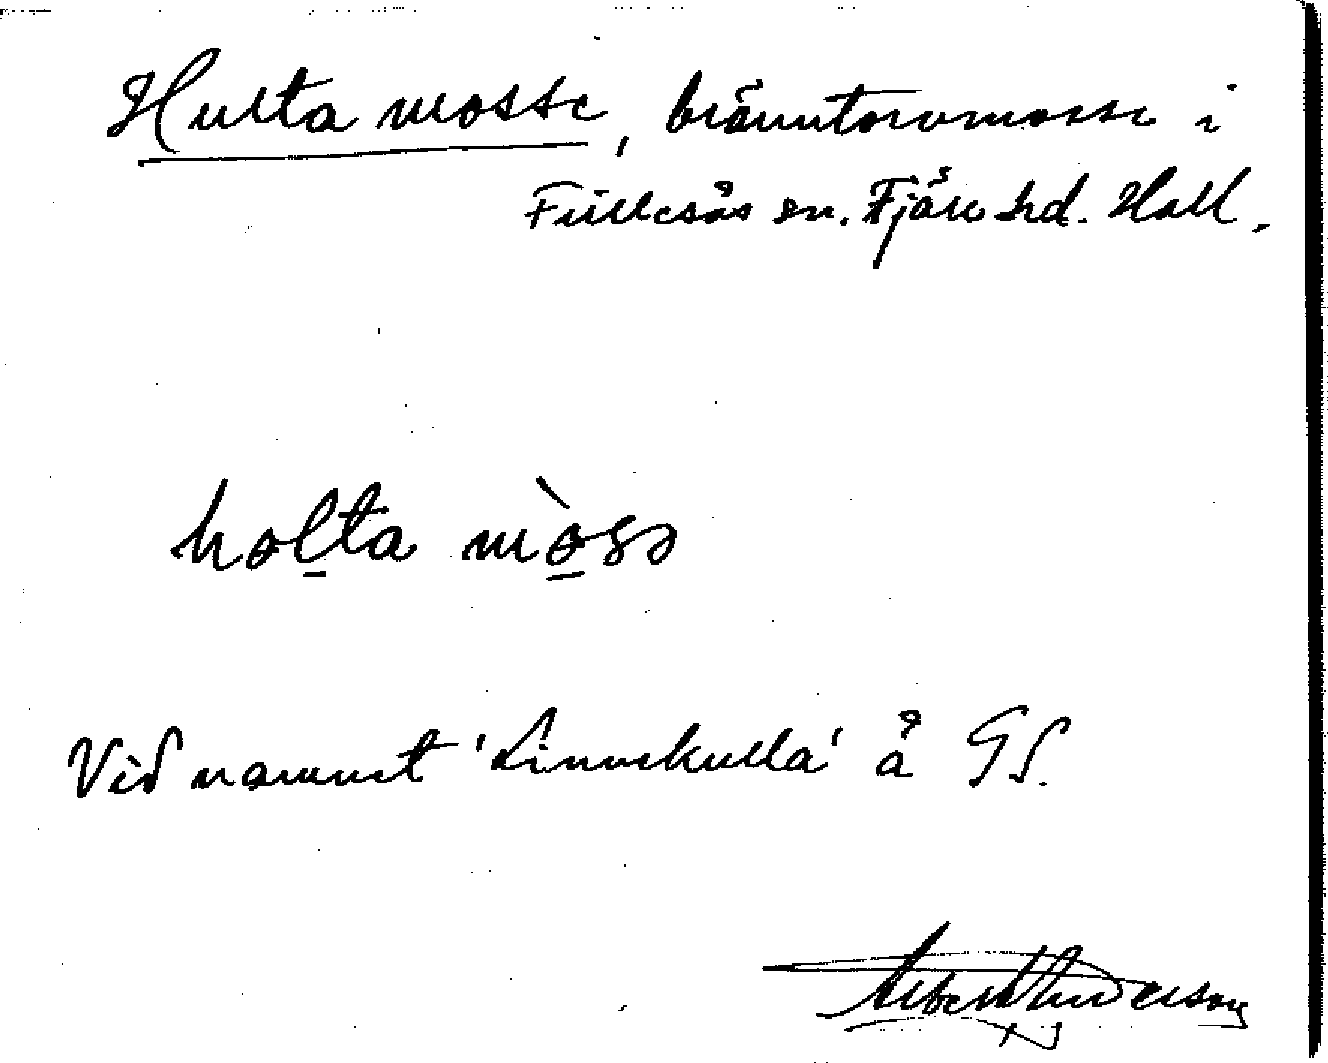 Hulta mosse, bränntorvmosse i
Fjärås sn. Fjäre hd. Hall.
holta mòsə
Vid namnet 'Linnekulla' å GS.
Albert Anderson